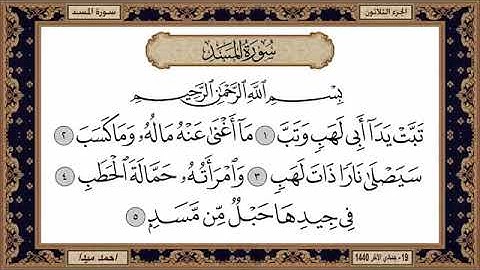 الجزء الثلاثون
سورة المسد
سُورَةُ المَسَدِ
بِسْمِ اللَّهِ الرَّحْمَٰنِ الرَّحِيمِ
تَبَّتْ يَدَآ أَبِي لَهَبٍ وَتَبَّ ١ مَآ أَغْنَىٰ عَنْهُ مَالُهُۥ وَمَا كَسَبَ ٢
سَيَصْلَىٰ نَارًا ذَاتَ لَهَبٍ ٣ وَٱمْرَأَتُهُۥ حَمَّالَةَ ٱلْحَطَبِ ٤
فِي جِيدِهَا حَبْلٌ مِّن مَّسَدٍۭ ٥
19 - جمادى الآخر 1440
أحمد ميدا